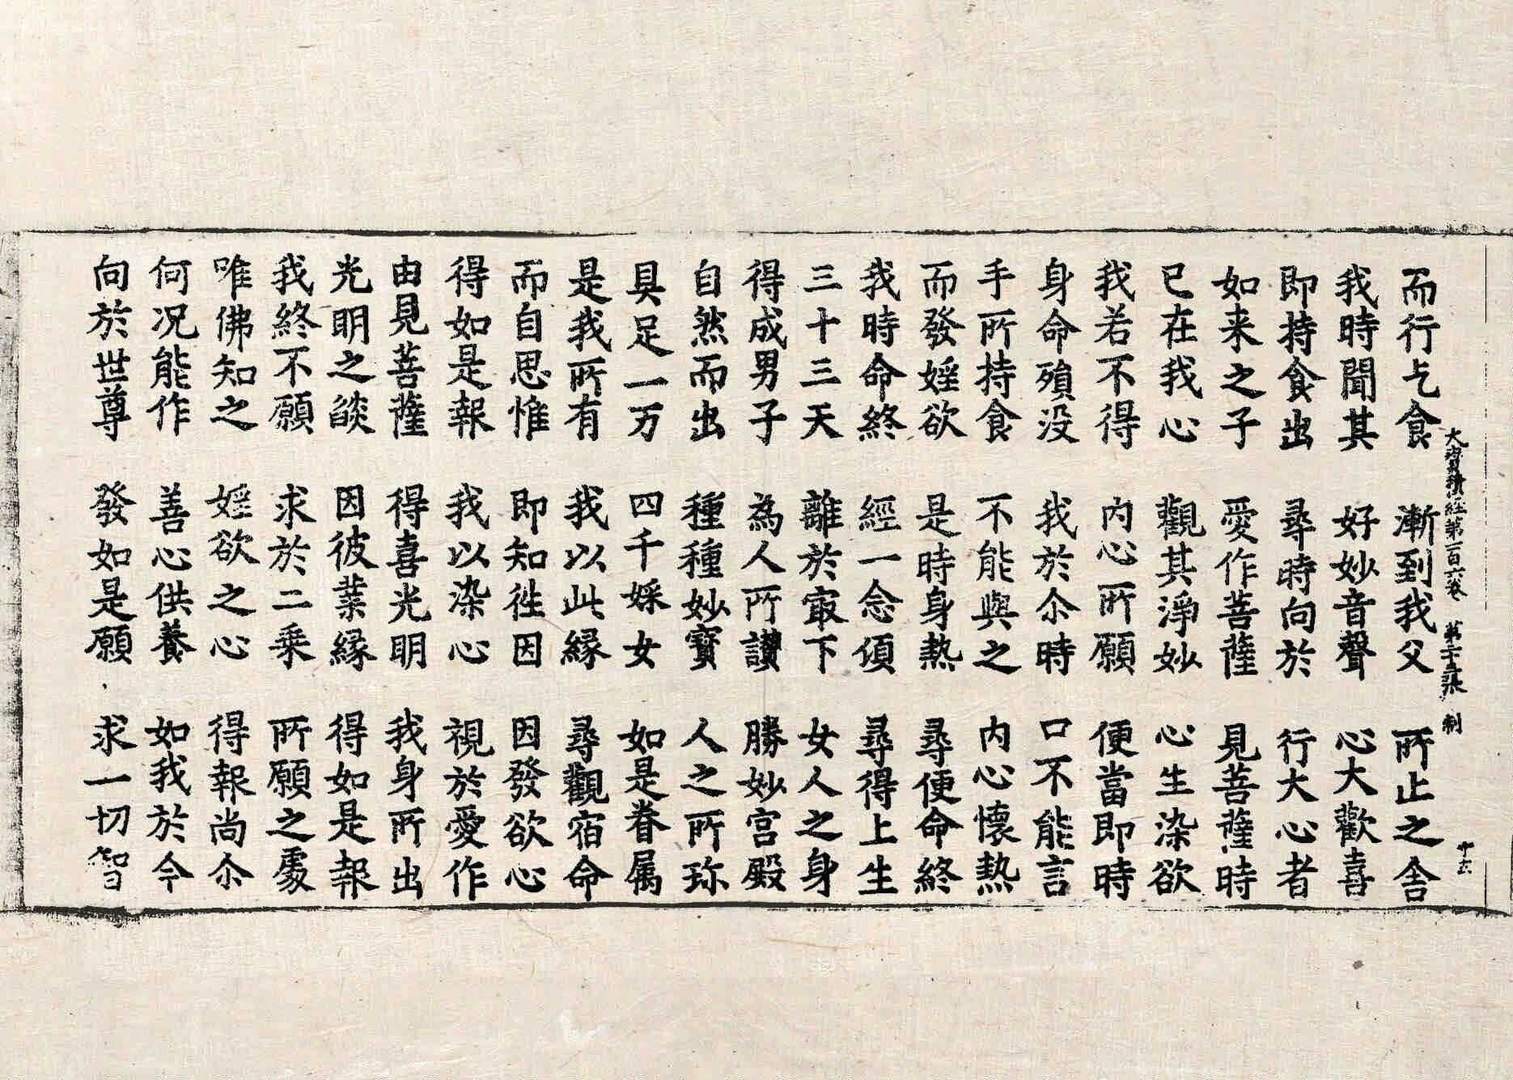 大寶積經第一百六卷 第二十三張 制 十六
而行乞食 漸到我父 所止之舍
我時聞其 好妙音聲 心大歡喜
即持食出 尋時向於 行大心者
如来之子 愛作菩薩 見菩薩時
已在我心 觀其淨妙 心生染欲
我若不得 内心所願 便當即時
身命殞没 我於尒時 口不能言
手所持食 不能與之 内心懷熱
而發婬欲 是時身熱 尋便命終
我時命終 經一念頃 尋得上生
三十三天 離於㝡下 女人之身
得成男子 為人所讃 勝妙宫殿
自然而出 種種妙寳 人之所珎
具足一万 四千婇女 如是眷属
是我所有 我以此縁 尋觀宿命
而自思惟 即知徃因 因發欲心
得如是報 我以染心 視於愛作
由見菩薩 得喜光明 我身所出
光明之燄 因彼業縁 得如是報
我終不願 求於二乗 所願之處
唯佛知之 婬欲之心 得報尚尒
何况能作 善心供養 如我於今
向於世尊 發如是願 求一切智